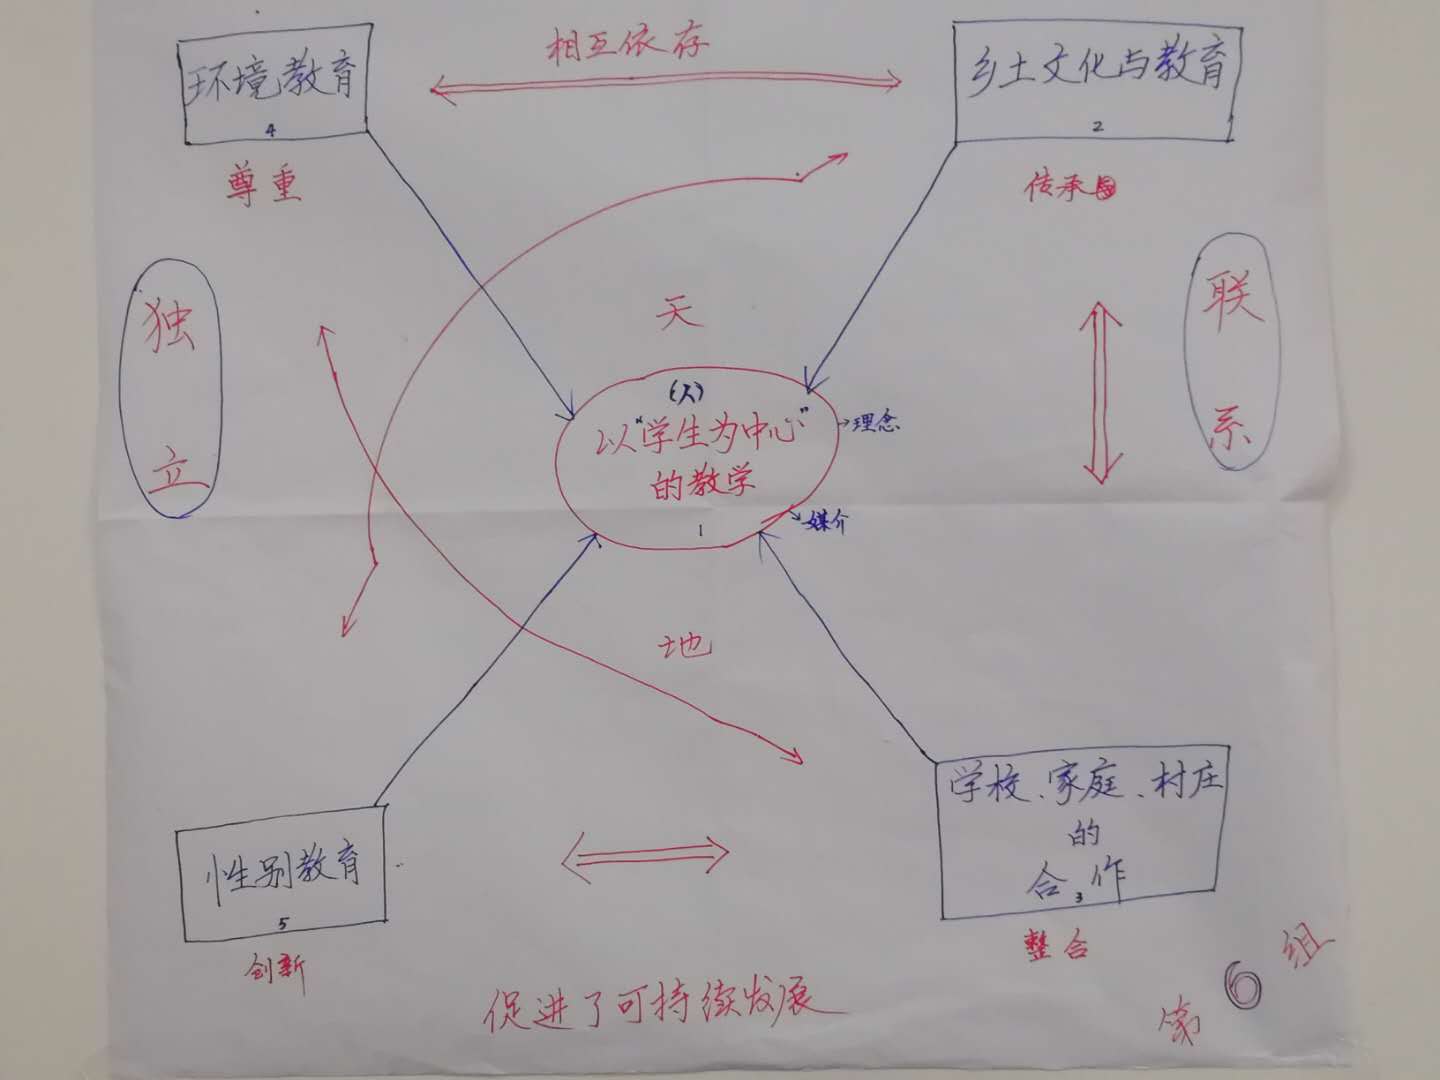 相互依存
环境教育
4
尊重
乡土文化与教育
2
传承
独立
联系
天
(人)
以"学生为中心"
的教学
1
理念
媒介
地
性别教育
5
创新
学校、家庭、村庄
的
合作
3
整合
促进了可持续发展
第6组